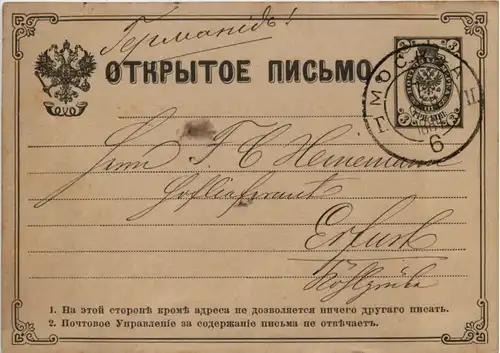 Германiя!
ОТКРЫТОЕ ПИСЬМО
МОСКВА
6
3 3
3 3
Herrn F. C. Heinemann
Hoflieferant
Erfurt
1. На этой сторонѣ кромѣ адреса не дозволяется ничего другаго писать.
2. Почтовое Управленiе за содержанiе письма не отвѣчаетъ.